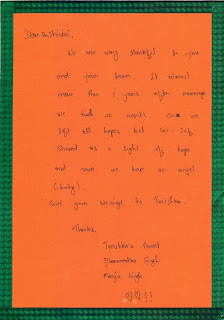 Dear
We are very thankful to you
and your team. It almost
more than 5 years after marriage
we had no result. Once we
left all hopes but
showed us a light of hope
and now we have an angel
(baby).
Give your blessings to Tanishka.
Thanks.
Tanishka's Parent
Dharmendra Singh
Ranju Singh.
!!